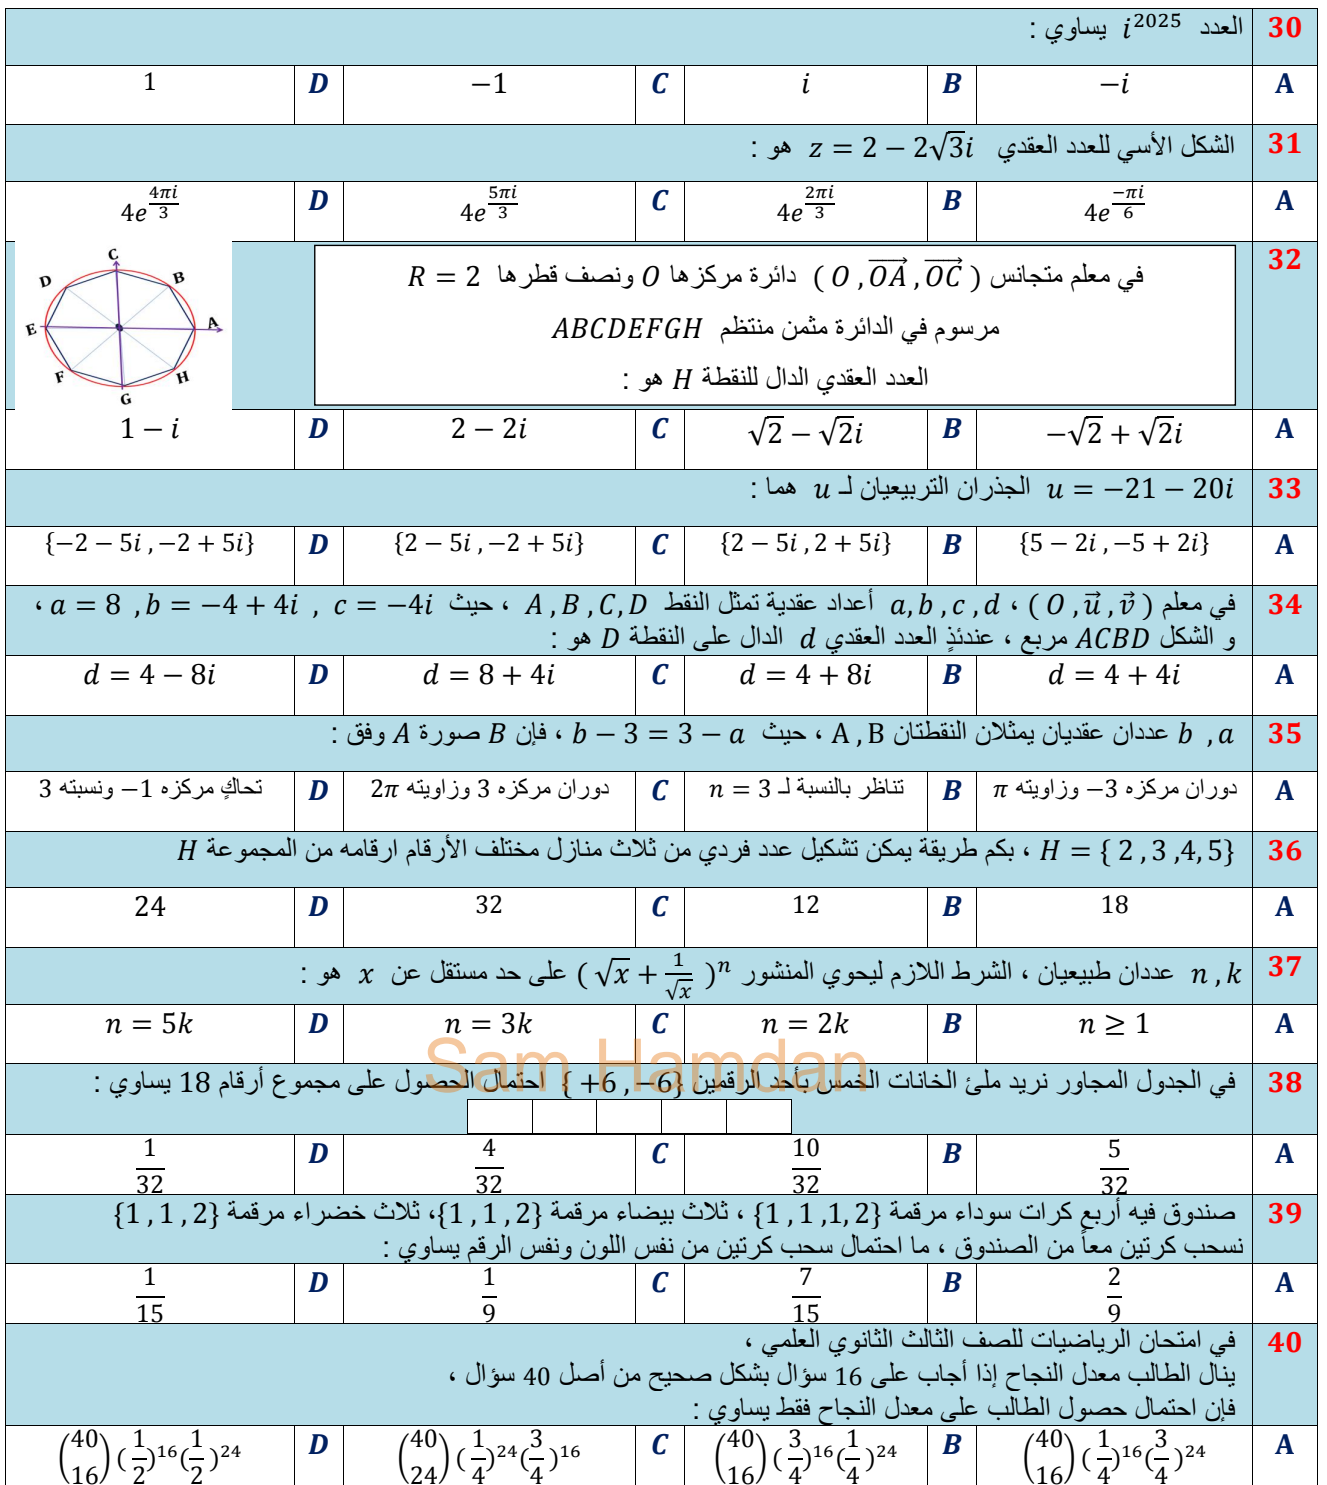 30 العدد $i^{2025}$ يساوي :
A $-i$ B $i$ C $-1$ D $1$
31 الشكل الأسي للعدد العقدي $z = 2 - 2\sqrt{3}i$ هو :
A $4e^{\frac{-\pi i}{6}}$ B $4e^{\frac{2\pi i}{3}}$ C $4e^{\frac{5\pi i}{3}}$ D $4e^{\frac{4\pi i}{3}}$
32 في معلم متجانس $( O , \overrightarrow{OA} , \overrightarrow{OC} )$ دائرة مركزها $O$ ونصف قطرها $R = 2$
مرسوم في الدائرة مثمن منتظم $ABCDEFGH$
العدد العقدي الدال للنقطة $H$ هو :
C
D B
E A
F H
G
A $-\sqrt{2} + \sqrt{2}i$ B $\sqrt{2} - \sqrt{2}i$ C $2 - 2i$ D $1 - i$
33 $u = -21 - 20i$ الجذران التربيعيان لـ $u$ هما :
A $\{5 - 2i , -5 + 2i\}$ B $\{2 - 5i , 2 + 5i\}$ C $\{2 - 5i , -2 + 5i\}$ D $\{-2 - 5i , -2 + 5i\}$
34 في معلم $( O , \vec{u} , \vec{v} )$ ، $a, b , c , d$ أعداد عقدية تمثل النقط $A , B , C, D$ ، حيث $a = 8 , b = -4 + 4i , c = -4i$ ،
و الشكل $ACBD$ مربع ، عندئذٍ العدد العقدي $d$ الدال على النقطة $D$ هو :
A $d = 4 + 4i$ B $d = 4 + 8i$ C $d = 8 + 4i$ D $d = 4 - 8i$
35 $b , a$ عددان عقديان يمثلان النقطتان A , B ، حيث $b - 3 = 3 - a$ ، فإن $B$ صورة $A$ وفق :
A دوران مركزه 3− وزاويته $\pi$ B تناظر بالنسبة لـ $n = 3$ C دوران مركزه 3 وزاويته $2\pi$ D تحاكٍ مركزه 1− ونسبته 3
36 $H = \{ 2 , 3 ,4, 5\}$ ، بكم طريقة يمكن تشكيل عدد فردي من ثلاث منازل مختلف الأرقام ارقامه من المجموعة $H$
A 18 B 12 C 32 D 24
37 $n , k$ عددان طبيعيان ، الشرط اللازم ليحوي المنشور $( \sqrt{x} + \frac{1}{\sqrt{x}} )^n$ على حد مستقل عن $x$ هو :
A $n \geq 1$ B $n = 2k$ C $n = 3k$ D $n = 5k$
Sam Hamdan
38 في الجدول المجاور نريد ملئ الخانات الخمس بأحد الرقمين $\{ +6 , -6\}$ احتمال الحصول على مجموع أرقام 18 يساوي :
A $\frac{5}{32}$ B $\frac{10}{32}$ C $\frac{4}{32}$ D $\frac{1}{32}$
39 صندوق فيه أربع كرات سوداء مرقمة $\{1 , 1 ,1, 2\}$ ، ثلاث بيضاء مرقمة $\{1 , 1 , 2\}$، ثلاث خضراء مرقمة $\{1 , 1 , 2\}$
نسحب كرتين معاً من الصندوق ، ما احتمال سحب كرتين من نفس اللون ونفس الرقم يساوي :
A $\frac{2}{9}$ B $\frac{7}{15}$ C $\frac{1}{9}$ D $\frac{1}{15}$
40 في امتحان الرياضيات للصف الثالث الثانوي العلمي ،
ينال الطالب معدل النجاح إذا أجاب على 16 سؤال بشكل صحيح من أصل 40 سؤال ،
فإن احتمال حصول الطالب على معدل النجاح فقط يساوي :
A $\binom{40}{16} (\frac{1}{4})^{16} (\frac{3}{4})^{24}$ B $\binom{40}{16} (\frac{3}{4})^{16} (\frac{1}{4})^{24}$ C $\binom{40}{24} (\frac{1}{4})^{24} (\frac{3}{4})^{16}$ D $\binom{40}{16} (\frac{1}{2})^{16} (\frac{1}{2})^{24}$